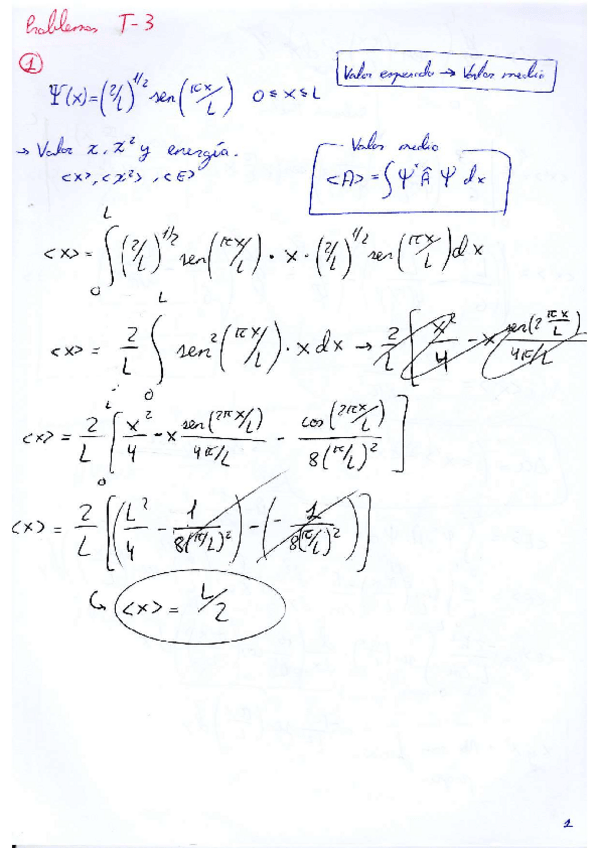 Problemas T-3
①
Valor esperado → Valor medio
Ψ(x)=(2/L)^1/2 sen(πx/L) 0≤x≤L
→ Valor x, x² y energía.
<x>, <x²>, <E>
Valor medio
<A> = ∫Ψ* Â Ψ dx
<x> = ∫₀ᴸ (2/L)^1/2 sen(πx/L) · x · (2/L)^1/2 sen(πx/L) dx
<x> = 2/L ∫₀ᴸ sen²(πx/L) · x dx → 2/L [x²/4 - x sen(2πx/L)/4π/L
<x> = 2/L ₀ᴸ[x²/4 - x sen(2πx/L)/4π/L - cos(2πx/L)/8(π/L)²]
<x> = 2/L [(L²/4 - 1/8(π/L)²) - (- 1/8(π/L)²)]
↳ <x> = L/2
1